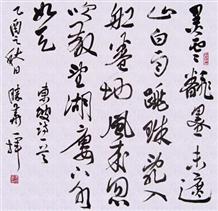 黑雲翻墨未遮
山白雨跳珠亂入
船卷地風來忽
吹散望湖樓下水
如天 東坡詩
乙酉之秋日